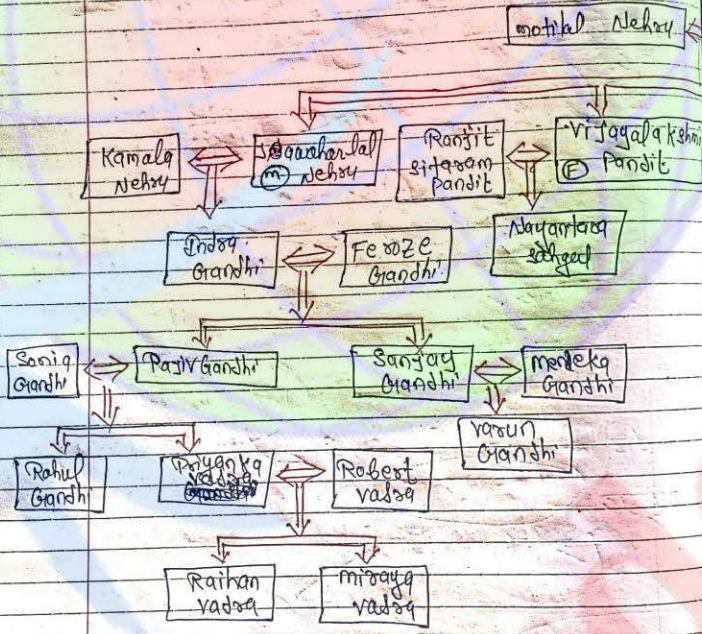 motilal Nehru
Kamala
Nehru
Jaawaharlal
(m) Nehru
Ranjit
sitaram
pandit
Vijayalakshmi
(F) Pandit
Indra
Gandhi
Feroze
Gandhi
Nayantara
sahgal
Sonia
Gandhi
Rajiv Gandhi
Sanjay
Gandhi
Meneka
Gandhi
Varun
Gandhi
Rahul
Gandhi
Priyanka
vadra
Robert
vadra
Raihan
vadra
miraya
vadra